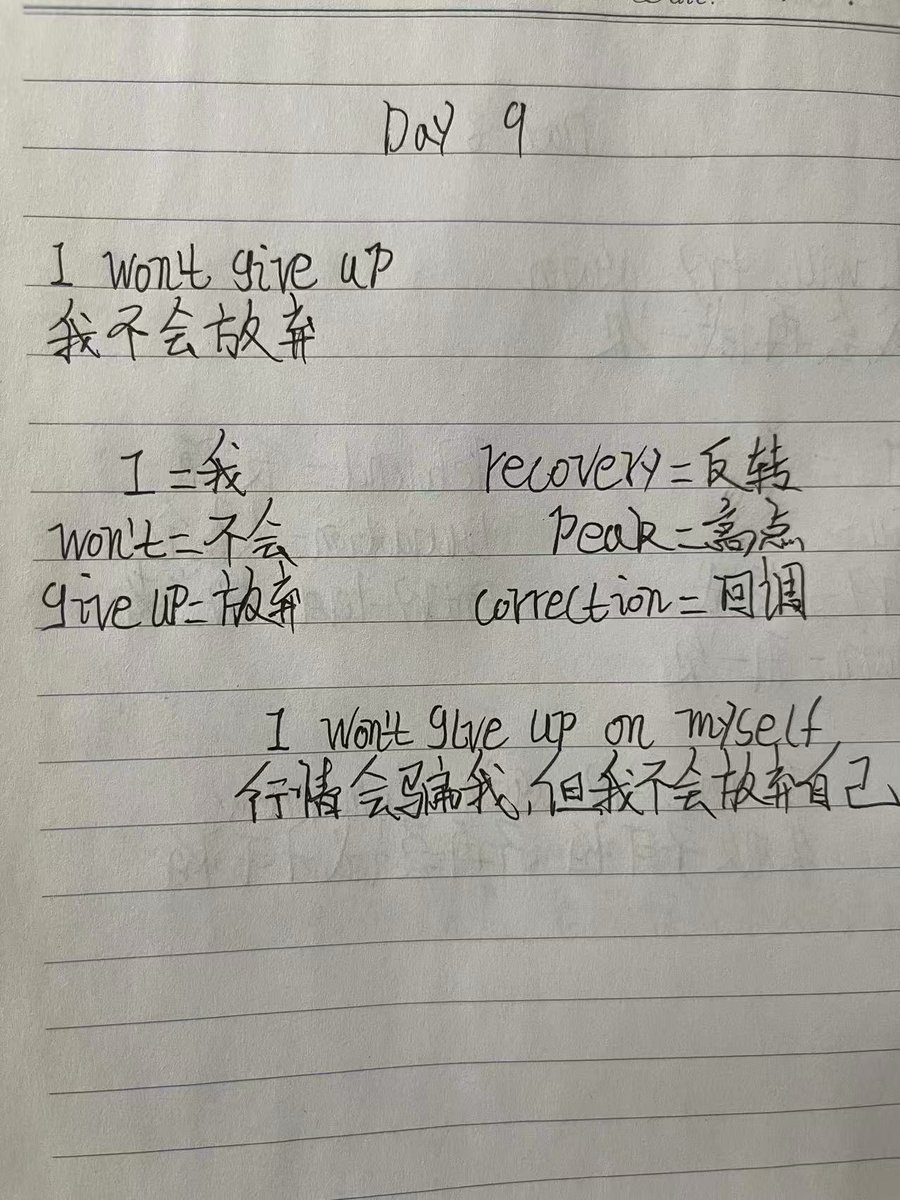 Day 9
I won't give up
我不会放弃
I=我
won't=不会
give up=放弃
recovery=反转
Peak=高点
correction=回调
I won't give up on myself
行情会骗我,但我不会放弃自己